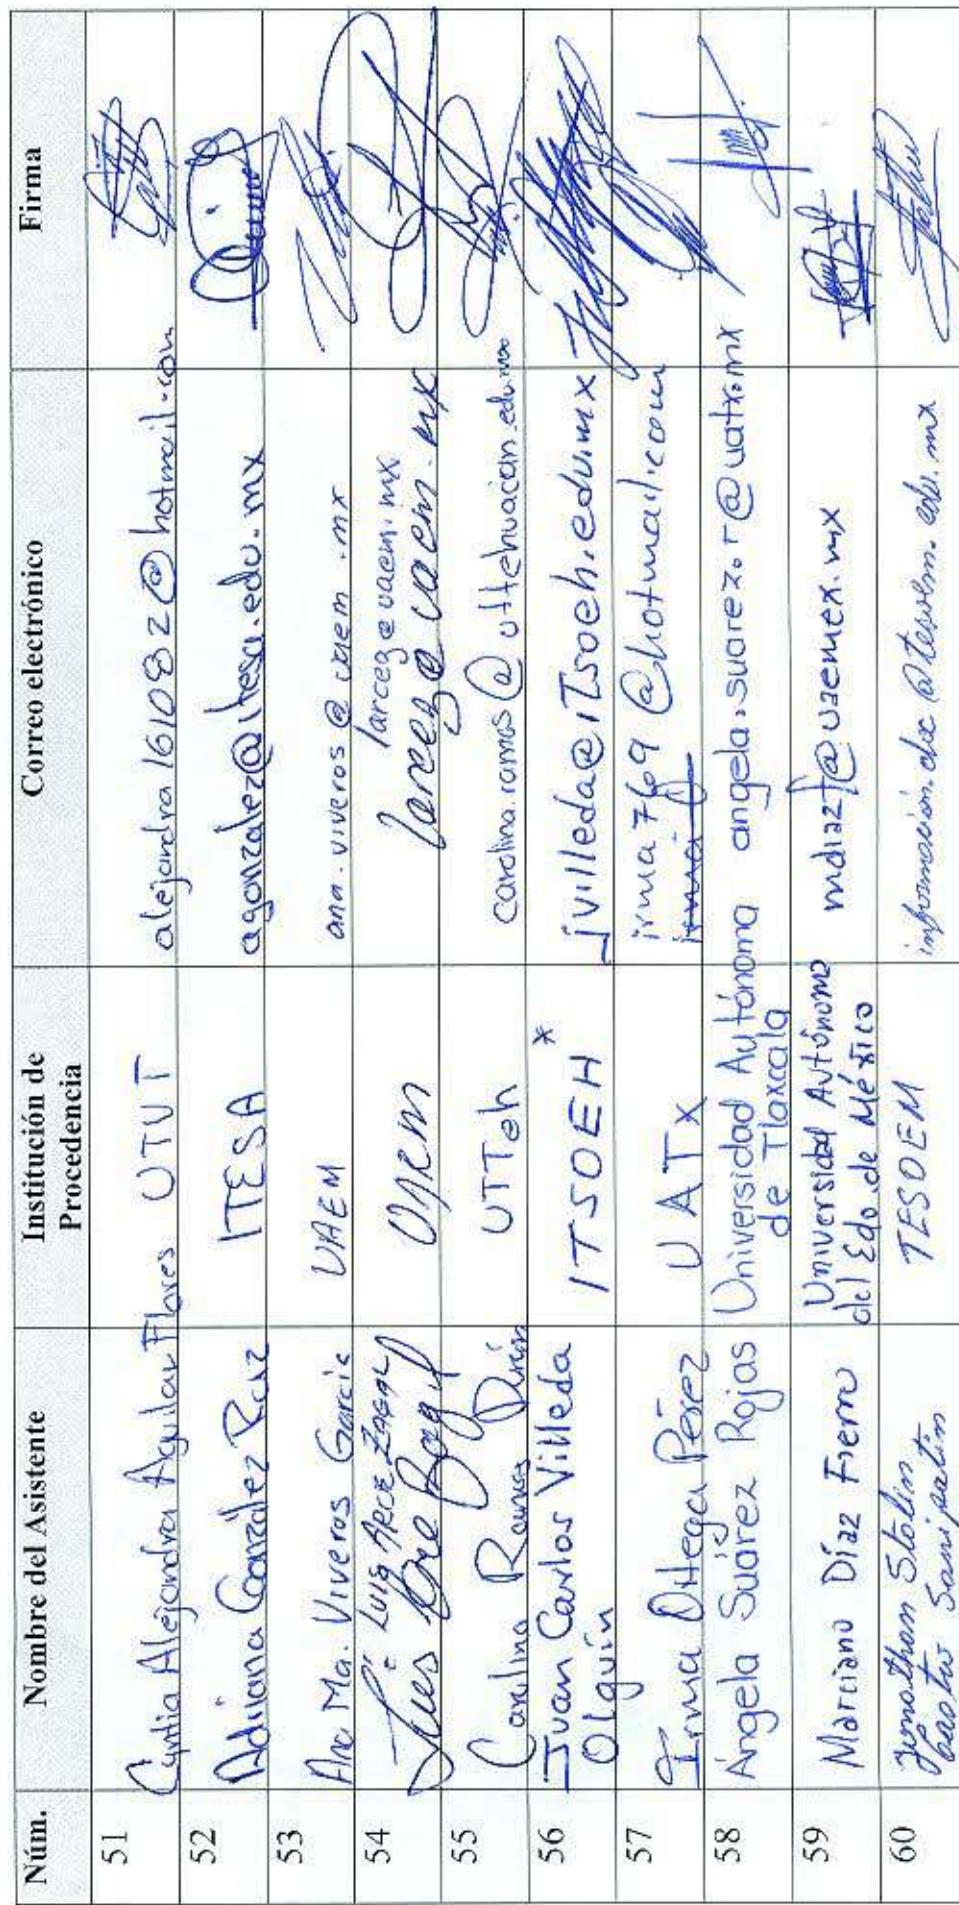 Núm. Nombre del Asistente Institución de Procedencia Correo electrónico Firma
51 Cyntia Alejandra Aguilar Flores UTVT alejandra161082@hotmail.com
52 Adriana González Ruiz ITESA agonzalez@itesa.edu.mx
53 Ana Ma. Viveros García UAEM ana.viveros@uaem.mx
54 José Luis Arce Zagal larceg@uaem.mx
UAEM larceg@uaem.mx
55 Carolina Ramos Durán UTTeh carolina.ramos@uttehuacan.edu.mx
56 Juan Carlos Villeda ITSOEH * jvilleda@itsoeh.edu.mx
Olguín
57 Irma Ortega Pérez UATx irma769@hotmail.com
58 Ángela Suárez Rojas Universidad Autónoma angela.suarez.r@uatx.mx
de Tlaxcala
59 Marciano Díaz Fierro Universidad Autónoma mdiazf@uaemex.mx
del Edo. de México
60 Jonathan Stalin TESOEM
Castro